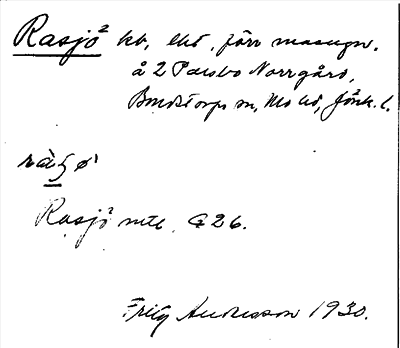 Rasjö² kb, ehd, förr masugn.
å 2 Parsbo Norrgård,
Bondstorps sn, Mo hd, Jönk. l.
Rasjö mtl, G 26.
Fritz Andersson 1930.